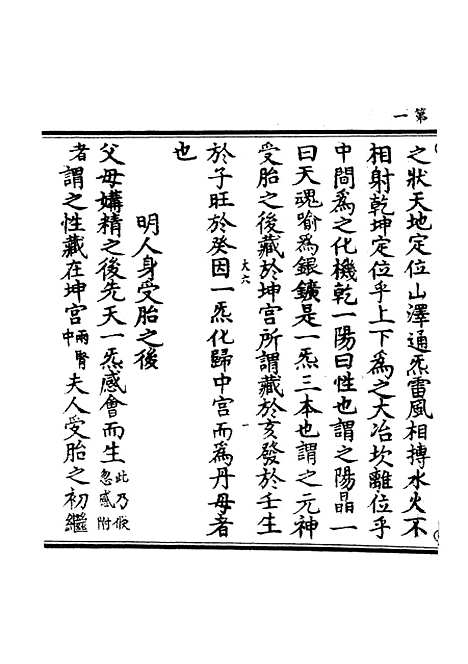 第一
之狀天地定位山澤通炁雷風相搏水火不
相射乾坤定位乎上下為之大冶坎離位乎
中間為之化機乾一陽曰性也謂之陽晶一
曰天魂喻為銀鑛是一炁三本也謂之元神
受胎之後藏於坤宮所謂藏於亥發於壬生
大六 一
於子旺於癸因一炁化歸中宮而為丹母者
也
明人身受胎之後
父母媾精之後先天一炁感會而生此乃恍忽感附
者謂之性藏在坤宮兩腎中夫人受胎之初繼